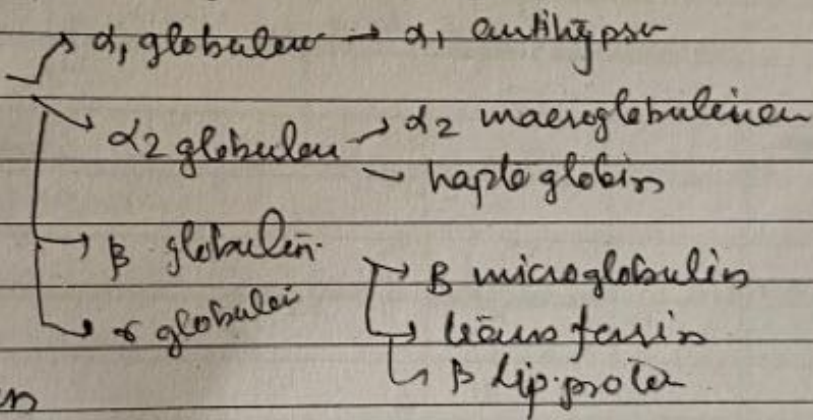 α, globulin → α, antitrypsin
α2 globulin → α2 macroglobulin
haptoglobin
β globulin.
β microglobulin
γ globulin
transferrin
β lipoprotein